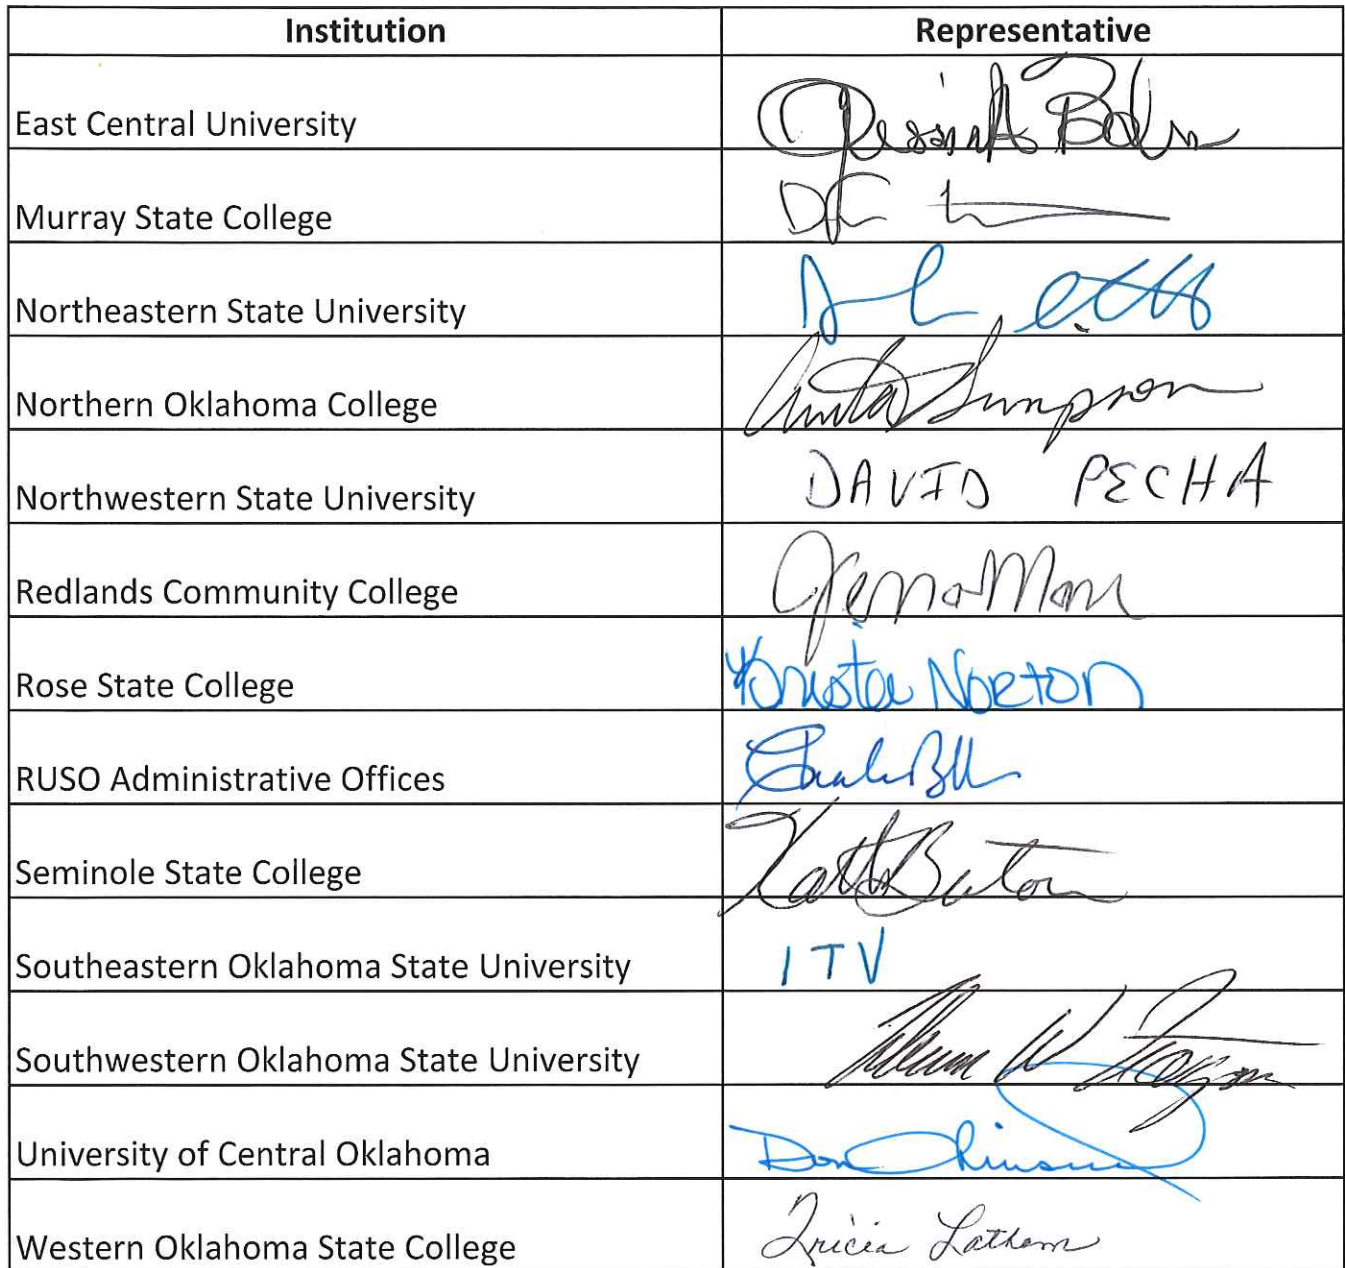 Institution Representative
East Central University
Murray State College
Northeastern State University
Northern Oklahoma College Anita Simpson
Northwestern State University DAVID PECHA
Redlands Community College
Rose State College Krista Norton
RUSO Administrative Offices
Seminole State College
Southeastern Oklahoma State University ITV
Southwestern Oklahoma State University
University of Central Oklahoma Don
Western Oklahoma State College Tricia Latham